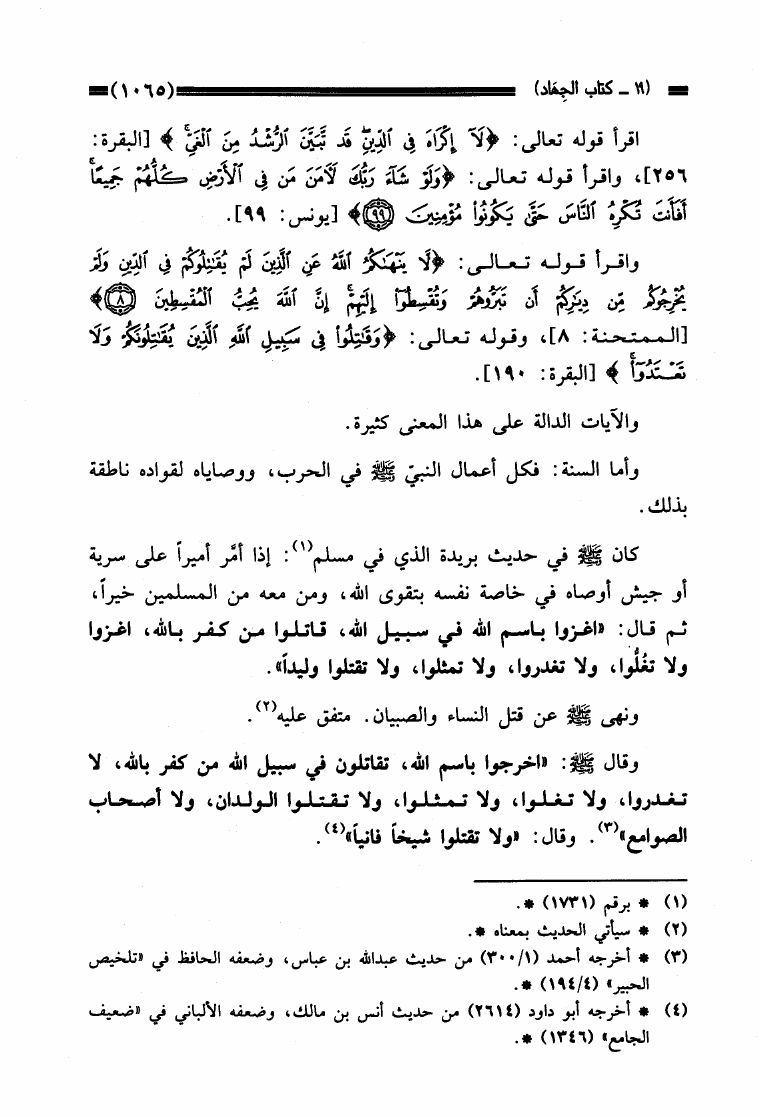 (١٩ ـ كتاب الجِهَاد) (١٠٦٥)
اقرأ قوله تعالى: ﴿لَآ إِكۡرَاهَ فِي ٱلدِّينِۖ قَد تَّبَيَّنَ ٱلرُّشۡدُ مِنَ ٱلۡغَيِّۚ﴾ [البقرة:
٢٥٦]، واقرأ قوله تعالى: ﴿وَلَوۡ شَآءَ رَبُّكَ لَأٓمَنَ مَن فِي ٱلۡأَرۡضِ كُلُّهُمۡ جَمِيعًاۚ
أَفَأَنتَ تُكۡرِهُ ٱلنَّاسَ حَتَّىٰ يَكُونُواْ مُؤۡمِنِينَ ٩٩﴾ [يونس: ٩٩].
واقرأ قوله تعالى: ﴿لَّا يَنۡهَىٰكُمُ ٱللَّهُ عَنِ ٱلَّذِينَ لَمۡ يُقَٰتِلُوكُمۡ فِي ٱلدِّينِ وَلَمۡ
يُخۡرِجُوكُم مِّن دِيَٰرِكُمۡ أَن تَبَرُّوهُمۡ وَتُقۡسِطُوٓاْ إِلَيۡهِمۡۚ إِنَّ ٱللَّهَ يُحِبُّ ٱلۡمُقۡسِطِينَ ٨﴾
[الممتحنة: ٨]، وقوله تعالى: ﴿وَقَٰتِلُواْ فِي سَبِيلِ ٱللَّهِ ٱلَّذِينَ يُقَٰتِلُونَكُمۡ وَلَا
تَعۡتَدُوٓاْۚ﴾ [البقرة: ١٩٠].
والآيات الدالة على هذا المعنى كثيرة.
وأما السنة: فكل أعمال النبيّ ﷺ في الحرب، ووصاياه لقواده ناطقة
بذلك.
كان ﷺ في حديث بريدة الذي في مسلم(١): إذا أمَّر أميراً على سرية
أو جيش أوصاه في خاصة نفسه بتقوى الله، ومن معه من المسلمين خيراً،
ثم قال: «اغزوا باسم الله في سبيل الله، قاتلوا من كفر بالله، اغزوا
ولا تغُلُّوا، ولا تغدروا، ولا تمثلوا، ولا تقتلوا وليداً».
ونهى ﷺ عن قتل النساء والصبيان. متفق عليه(٢).
وقال ﷺ: «اخرجوا باسم الله، تقاتلون في سبيل الله من كفر بالله، لا
تغدروا، ولا تغلوا، ولا تمثلوا، ولا تقتلوا الولدان، ولا أصحاب
الصوامع»(٣). وقال: «ولا تقتلوا شيخاً فانياً»(٤).
(١) * برقم (١٧٣١) *.
(٢) * سيأتي الحديث بمعناه *.
(٣) * أخرجه أحمد (٣٠٠/١) من حديث عبدالله بن عباس، وضعفه الحافظ في «تلخيص
الحبير» (١٩٤/٤) *.
(٤) * أخرجه أبو داود (٢٦١٤) من حديث أنس بن مالك، وضعفه الألباني في «ضعيف
الجامع» (١٣٤٦) *.